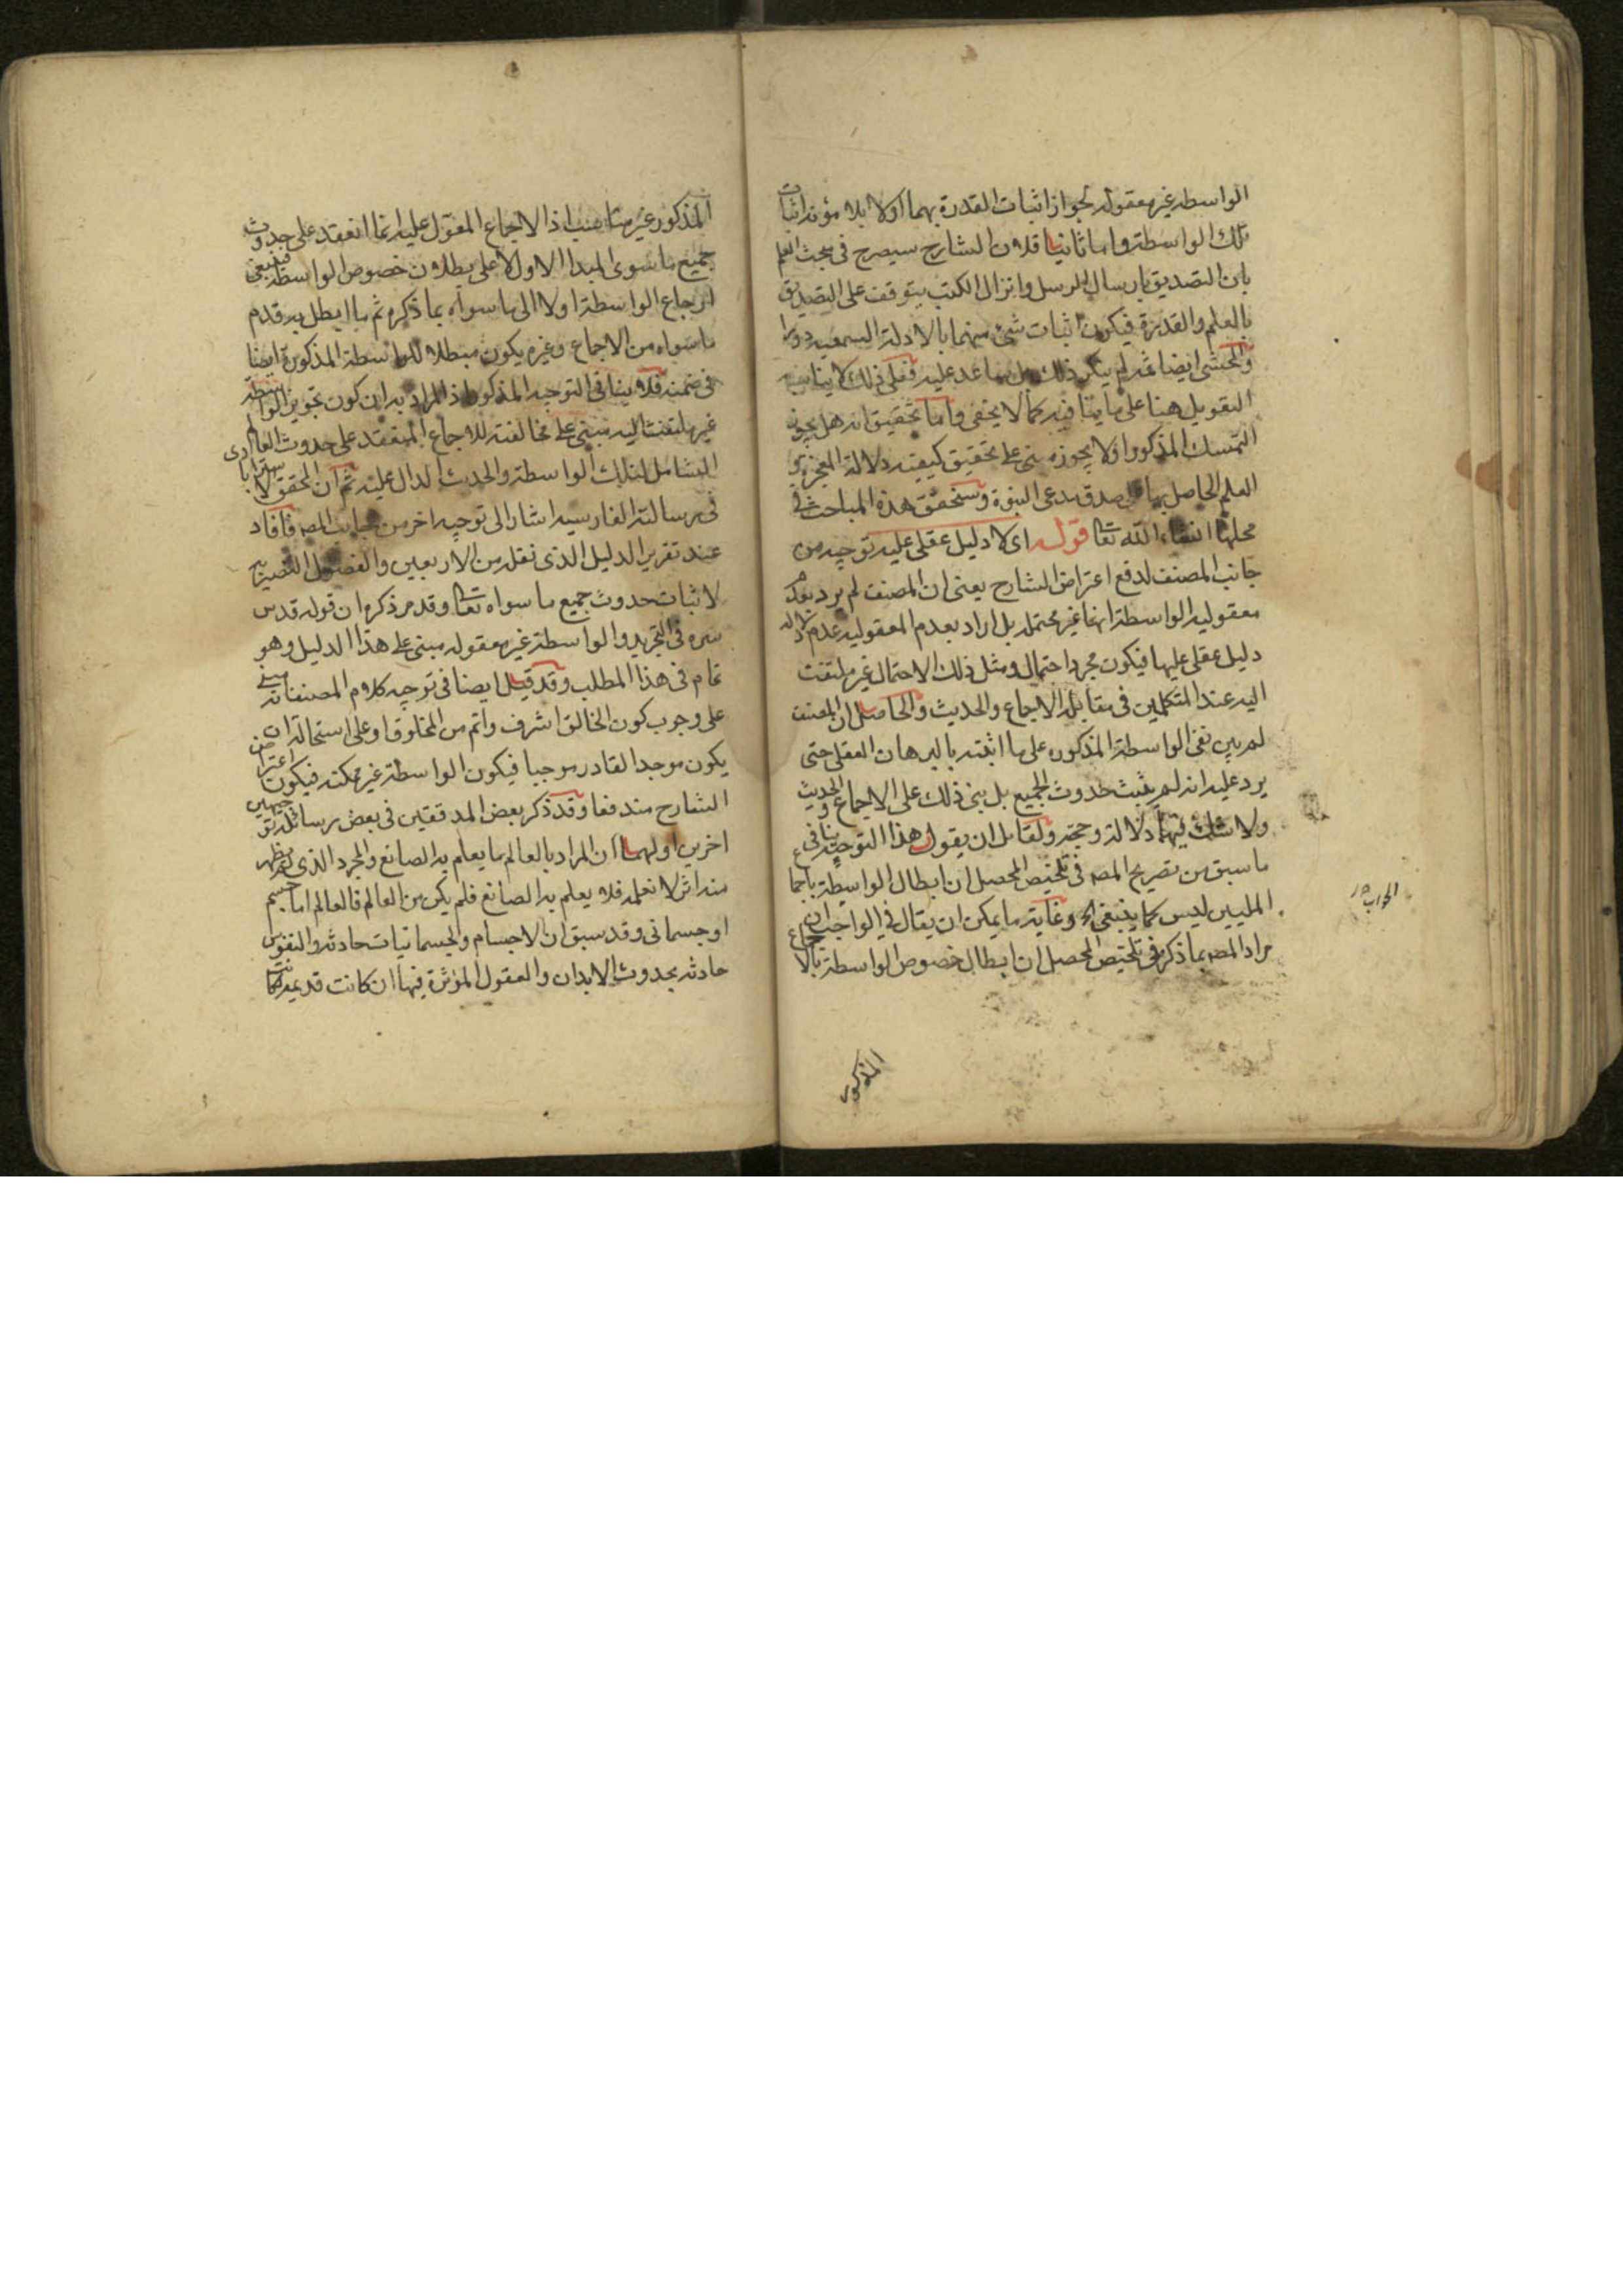 الواسطه غير معقوله لجواز اثبات القدرة بهما اولا بلا مؤنة اثبات
تلك الواسطة واما ثانيا فلان الشارح سيصرح في مبحث العلم
بان التصديق بارسال الرسل وانزال الكتب يتوقف على التصديق
بالعلم والقدرة فيكون اثبات شئ منهما بالادلة السمعيه دورا
والمحشى ايضا ثمه لم ينكر ذلك بل ساعد عليه فعلى ذلك لا يناسبه
التعويل هنا على ما ينافيه كما لا يخفى واما تحقيق انه هل يجوز
التمسك المذكور او لا يجوز مبنى على تحقيق كيفيه دلالة المعجزة و
العلم الحاصل بها على صدق مدعى النبوة وسنحقق هذه المباحث في
محلها انشاء الله تعا قوله اى لا دليل عقلى عليه توجيه من
جانب المصنف لدفع اعتراض الشارح يعنى ان المصنف لم يرد بعدم
معقوليه الواسطة انها غير محتمله بل اراد بعدم المعقوليه عدم دلالة
دليل عقلى عليها فيكون مجرد احتمال ومثل ذلك الاحتمال غير ملتفت
اليه عند المتكلمين في مقابلة الاجماع والحديث والحاصل ان المصنف
لم يبن نفى الواسطة المذكوره على ما اثبته بالبرهان العقلى حتى
يرد عليه انه لم يثبت حدوث الجميع بل بنى ذلك على الاجماع والحديث
ولا شك فيهما دلالة وحجة ولقائل ان يقول هذا التوجيه ينافى
ما سبق من تصريح المصه في تلخيص المحصل ان ابطال الواسطة باجماع
المليين ليس كما ينبغى الخ وغاية ما يمكن ان يقال في الجواب ان
مراد المصه بما ذكره في تلخيص المحصل ان ابطال خصوص الواسطة بالاجماع
المذكور
الجواب
المذكور غير مناسب اذ الاجماع المعول عليه انما انعقد على حدوث
جميع ما سوى المبدا الاول لا على بطلان خصوص الواسطة فينبغى
ارجاع الواسطة اولا الى ما سواه بما ذكره ثم ما ابطل به قدم
ما سواه من الاجماع وغيره يكون مبطلا للواسطة المذكورة ايضا
في ضمنه فلا ينافى التوجيه المذكور اذ المراد به ان كون تجويز الواسطة
غير ملتفت اليه مبنى على مخالفته للاجماع المنعقد على حدوث العالم
الشامل لتلك الواسطة والحديث الدال عليه ثم ان المحقق الاسترابادى
في رسالته الفارسيه اشار الى توجيه اخر من جانب المصه فافاد
عند تقرير الدليل الذى نقله من الاربعين والفصول النصيريه
لاثبات حدوث جميع ما سواه تعا وقد مر ذكره ان قوله قدس
سره في التجريد والواسطة غير معقوله مبنى على هذا الدليل وهو
تمام في هذا المطلب وقد قيل ايضا في توجيه كلام المصنف انه مبنى
على وجوب كون الخالق اشرف واتم من المخلوق او على استحالة ان
يكون موجد القادر موجبا فيكون الواسطة غير ممكنه فيكون اعتراض
الشارح مندفعا وقد ذكر بعض المدققين في بعض رسائله توجيهين
اخرين اولهما ان المراد بالعالم ما يعلم به الصانع والمجرد الذى لم يظهر
منه اثر لا نعلمه فلا يعلم به الصانع فلم يكن من العالم فالعالم اما جسم
او جسمانى وقد سبق ان الاجسام والجسمانيات حادثه والنفوس
حادثه بحدوث الابدان والعقول المؤثرة فيها ان كانت قديمه